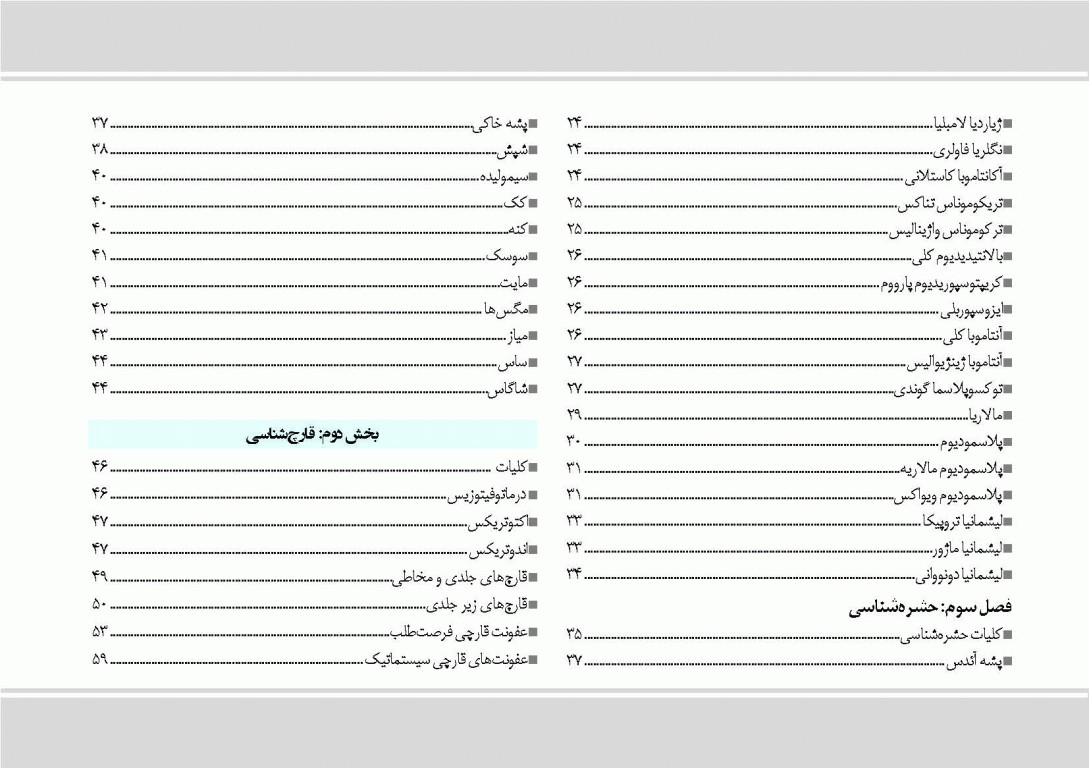 ژیاردیا لامبلیا ۲۴
نگلریا فاولری ۲۴
آکانتاموبا کاستلانی ۲۴
تریکوموناس تناکس ۲۵
ترکوموناس واژینالیس ۲۵
بالانتیدیدیوم کلی ۲۶
کریپتوسپوریدیوم پارووم ۲۶
ایزوسپوربلی ۲۶
آنتاموبا کلی ۲۶
آنتاموبا ژینژیوالیس ۲۷
توکسوپلاسما گوندی ۲۷
مالاریا ۲۹
پلاسمودیوم ۳۰
پلاسمودیوم مالاریه ۳۱
پلاسمودیوم ویواکس ۳۱
لیشمانیا تروپیکا ۳۳
لیشمانیا ماژور ۳۳
لیشمانیا دونووانی ۳۴
فصل سوم: حشره‌شناسی
کلیات حشره‌شناسی ۳۵
پشه آئدس ۳۷
پشه خاکی ۳۷
شپش ۳۸
سیمولیده ۴۰
کک ۴۰
کنه ۴۰
سوسک ۴۱
مایت ۴۱
مگس‌ها ۴۲
میاز ۴۳
ساس ۴۴
شاگاس ۴۴
بخش دوم: قارچ‌شناسی
کلیات ۴۶
درماتوفیتوزیس ۴۶
اکتوتریکس ۴۷
اندوتریکس ۴۷
قارچ‌های جلدی و مخاطی ۴۹
قارچ‌های زیر جلدی ۵۰
عفونت قارچی فرصت‌طلب ۵۳
عفونت‌های قارچی سیستماتیک ۵۹